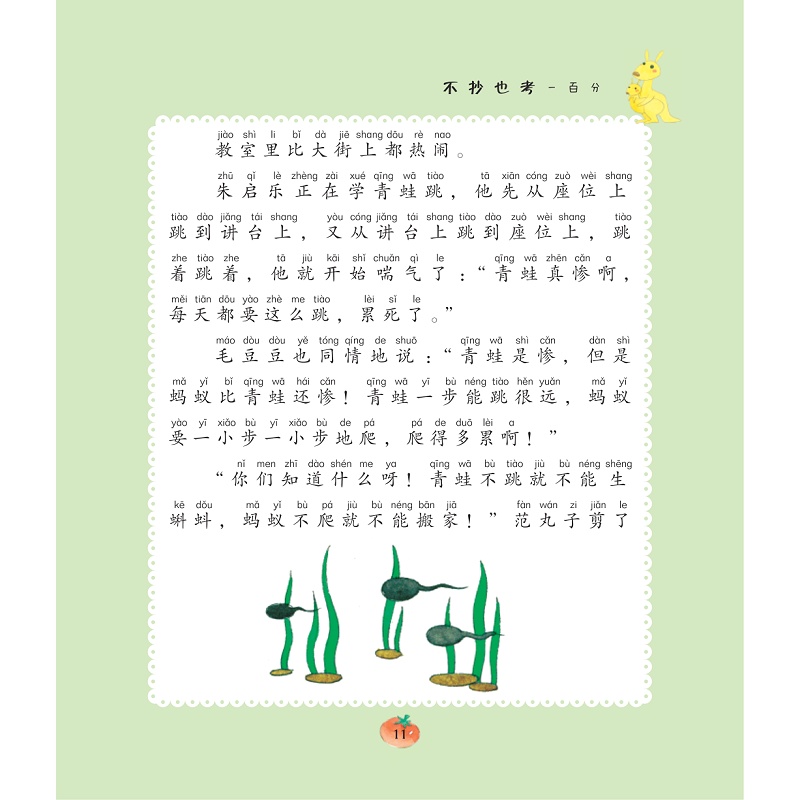 不抄也考一百分
jiào shì li bǐ dà jiē shang dōu rè nao
教室里比大街上都热闹。
zhū qǐ lè zhèng zài xué qīng wā tiào tā xiān cóng zuò wèi shang
朱启乐正在学青蛙跳，他先从座位上
tiào dào jiǎng tái shang yòu cóng jiǎng tái shang tiào dào zuò wèi shang tiào
跳到讲台上，又从讲台上跳到座位上，跳
zhe tiào zhe tā jiù kāi shǐ chuǎn qì le qīng wā zhēn cǎn a
着跳着，他就开始喘气了：“青蛙真惨啊，
měi tiān dōu yào zhè me tiào lèi sǐ le
每天都要这么跳，累死了。”
máo dòu dòu yě tóng qíng de shuō qīng wā shì cǎn dàn shì
毛豆豆也同情地说：“青蛙是惨，但是
mǎ yǐ bǐ qīng wā hái cǎn qīng wā yī bù néng tiào hěn yuǎn mǎ yǐ
蚂蚁比青蛙还惨！青蛙一步能跳很远，蚂蚁
yào yī xiǎo bù yī xiǎo bù de pá pá de duō lèi a
要一小步一小步地爬，爬得多累啊！”
nǐ men zhī dào shén me ya qīng wā bù tiào jiù bù néng shēng
“你们知道什么呀！青蛙不跳就不能生
kē dǒu mǎ yǐ bù pá jiù bù néng bān jiā fàn wán zi jiǎn le
蝌蚪，蚂蚁不爬就不能搬家！”范丸子剪了
11